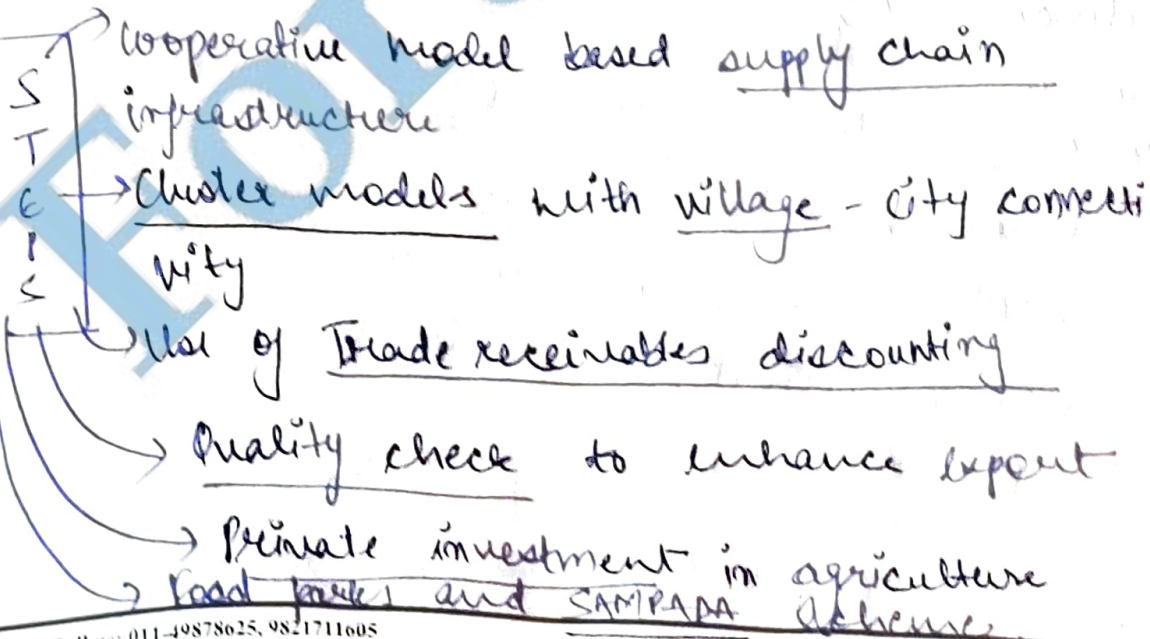 STEPS
Cooperative model based supply chain
infrastructure
Cluster models with village - city connecti
vity
Use of Trade receivables discounting
Quality check to enhance export
Private investment in agriculture
Food parks and SAMPADA scheme.
011-49878625, 9821711605